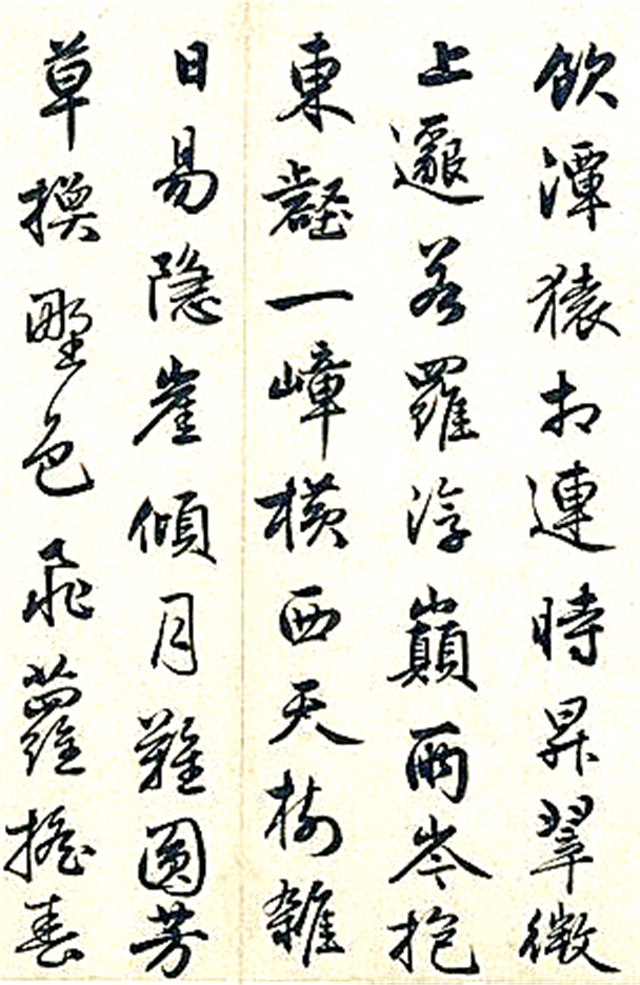 飲潭猿相連時昇翠微
上邈若羅浮巔兩岑抱
東壑一嶂横西天樹雜
日易隱崖傾月難圓芳
草換野色飛蘿搖春